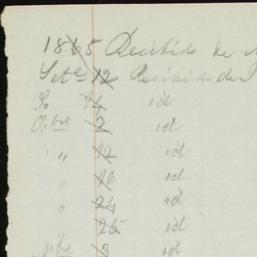 1865 Recibido de
Set.e 12 Recibido de
So 14 id
Octbre 2 id
" 12 id
" 16 id
" 24 id
" 25 id
Nbe 3 id